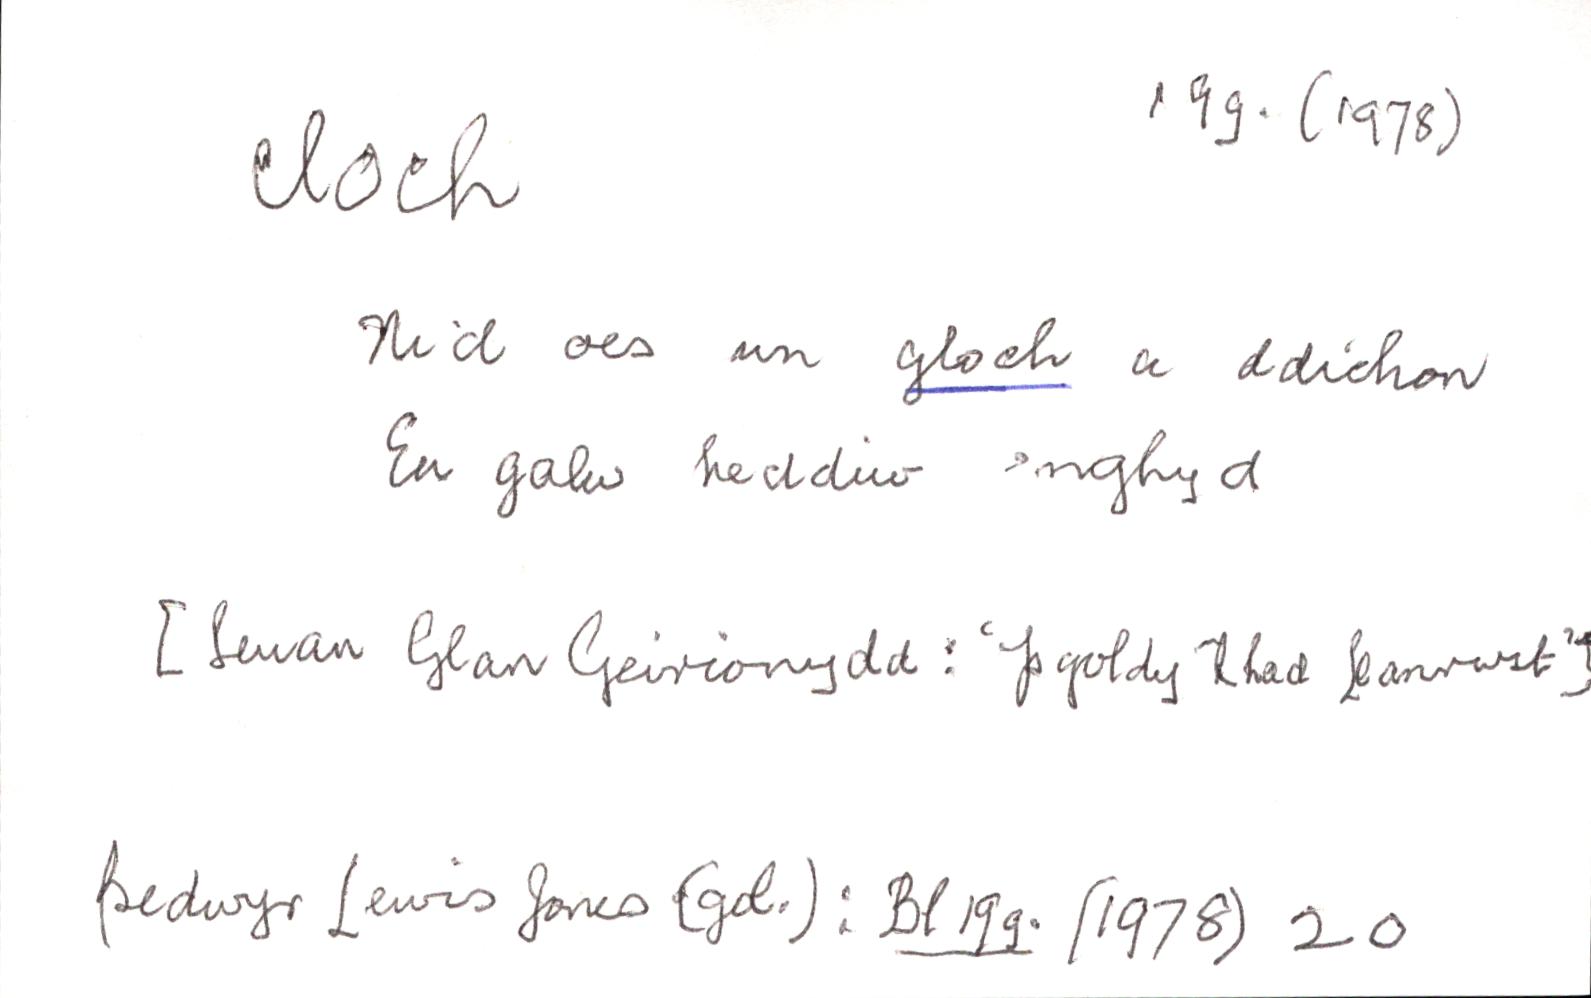 19g. (1978)
cloch
Nid oes un gloch a ddichon
Eu galw heddiw 'nghyd
[Ieuan Glan Geirionydd: 'Ysgoldy Rhad Llanrwst']
Bedwyr Lewis Jones (gol.): Bl 19g. (1978) 20